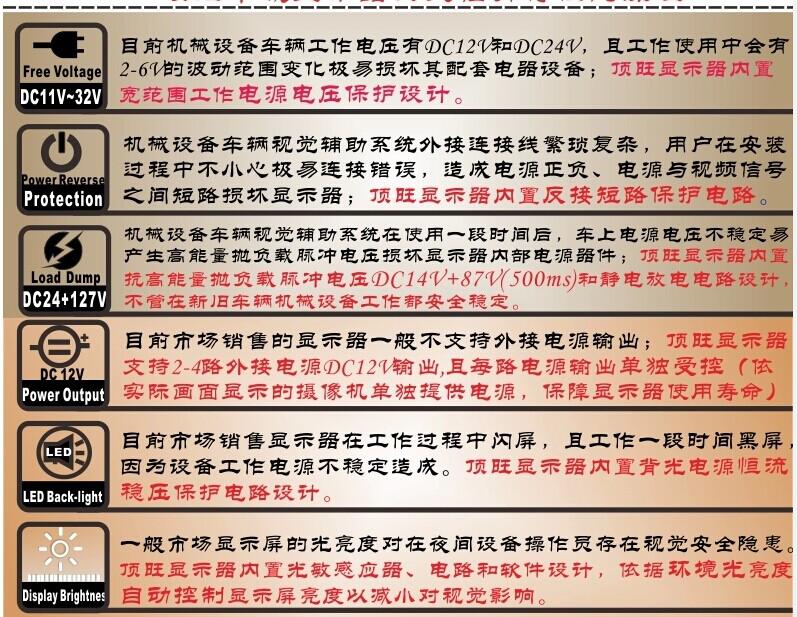 Free Voltage
DC11V~32V
目前机械设备车辆工作电压有DC12V和DC24V，且工作使用中会有
2-6V的波动范围变化极易损坏其配套电器设备；顶旺显示器内置
宽范围工作电源电压保护设计。
Power Reverse
Protection
机械设备车辆视觉辅助系统外接连接线繁琐复杂，用户在安装
过程中不小心极易连接错误，造成电源正负、电源与视频信号
之间短路损坏显示器；顶旺显示器内置反接短路保护电路。
Load Dump
DC24+127V
机械设备车辆视觉辅助系统在使用一段时间后，车上电源电压不稳定易
产生高能量抛负载脉冲电压损坏显示器内部电源器件；顶旺显示器内置
抗高能量抛负载脉冲电压DC14V+87V(500ms)和静电放电电路设计，
不管在新旧车辆机械设备工作都安全稳定。
DC 12V
Power Output
目前市场销售的显示器一般不支持外接电源输出；顶旺显示器
支持2-4路外接电源DC12V输出,且每路电源输出单独受控（依
实际画面显示的摄像机单独提供电源，保障显示器使用寿命）
LED
LED Back-light
目前市场销售显示器在工作过程中闪屏，且工作一段时间黑屏，
因为设备工作电源不稳定造成。顶旺显示器内置背光电源恒流
稳压保护电路设计。
Display Brightnes
一般市场显示屏的光亮度对在夜间设备操作员存在视觉安全隐患。
顶旺显示器内置光敏感应器、电路和软件设计，依据环境光亮度
自动控制显示屏亮度以减小对视觉影响。